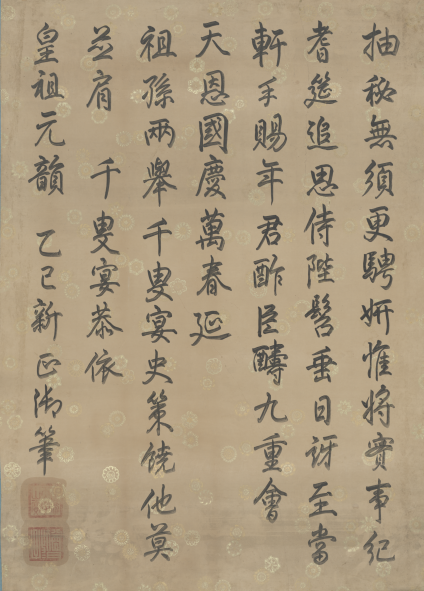 抽秘無須更騁妍惟將實事紀
耆筵追思侍陛髫垂日訝至當
軒手賜年君酢臣醻九重會
天恩國慶萬春延
祖孫兩舉千叟宴史策饒他莫
並肩　千叟宴恭依
皇祖元韻　乙巳新正御筆